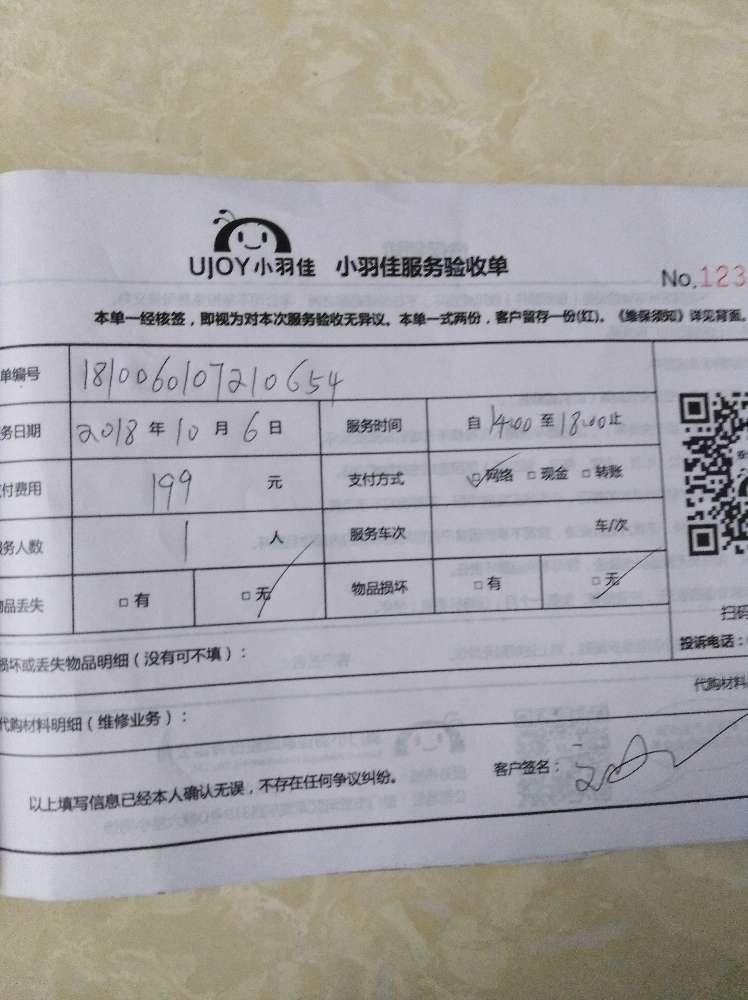 UJOY小羽佳 小羽佳服务验收单
No.123
本单一经核签，即视为对本次服务验收无异议。本单一式两份，客户留存一份(红)。《维保须知》详见背面。
单编号 1810060107210654
务日期 2018 年 10 月 6 日 服务时间 自 14:00 至 18:00 止
付费用 199 元 支付方式 ☑网络 □现金 □转账
务人数 1 人 服务车次 车/次
品丢失 □有 □无 物品损坏 □有 □无
扫码
损坏或丢失物品明细（没有可不填）： 投诉电话：
代购材料明细（维修业务）： 代购材料
以上填写信息已经本人确认无误，不存在任何争议纠纷。 客户签名：